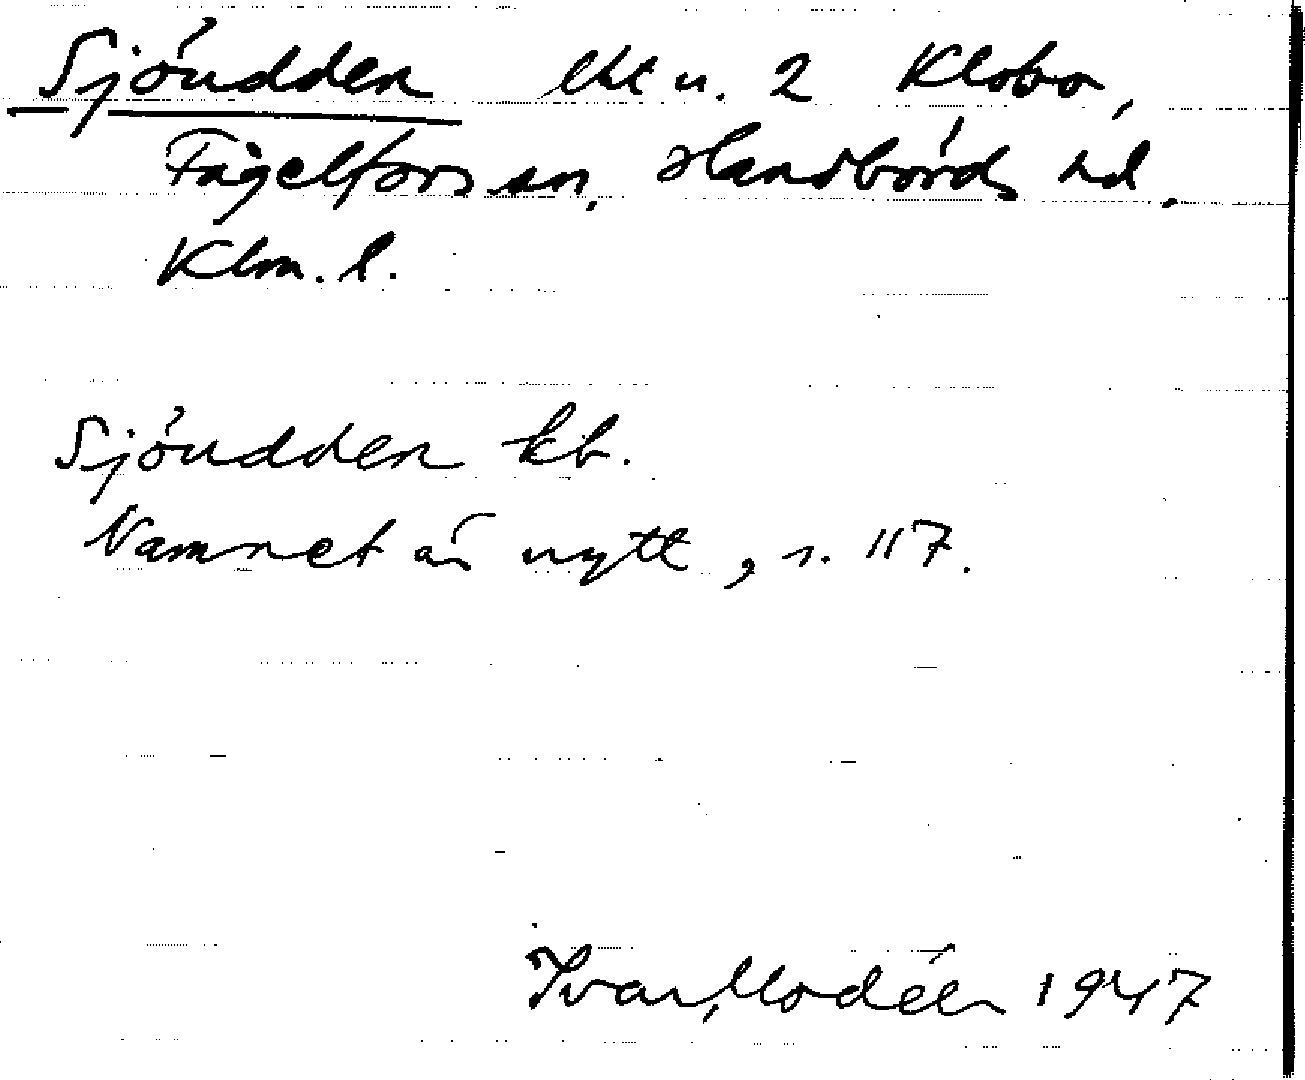 Sjöudden lht u. 2 Klobo,
Fågelfors sn, Handbörds hd.
Klm. l.
Sjöudden kb.
Namnet är nytt, s. 117.
Ivar Modéer 1947